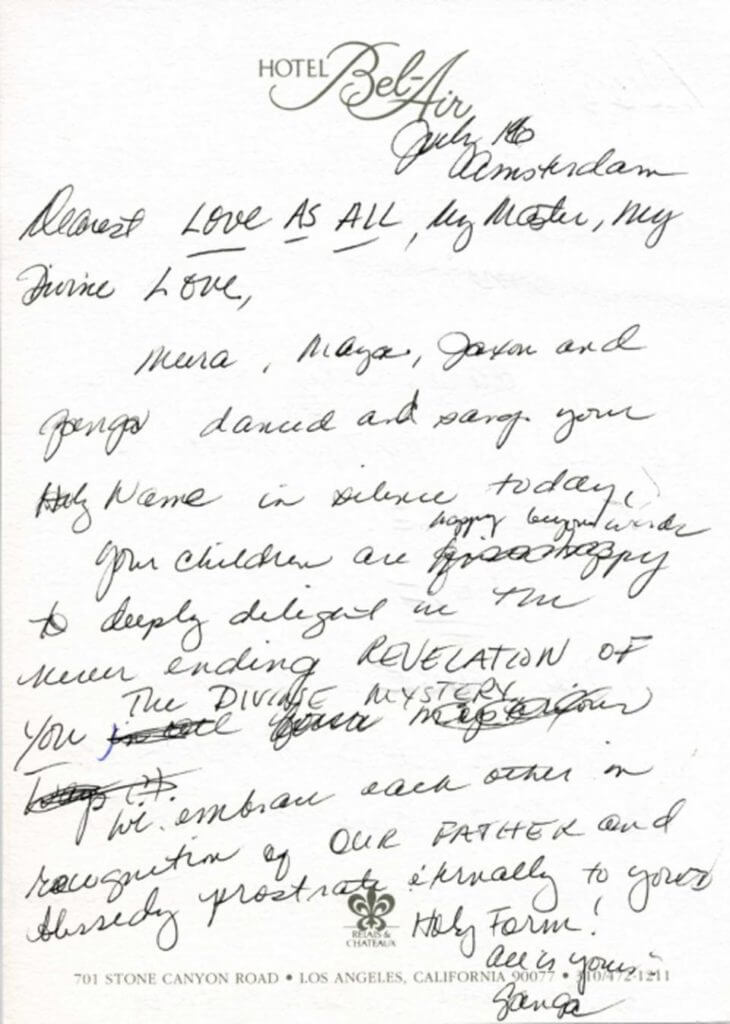 HOTEL Bel-Air
July 16
Amsterdam
Dearest LOVE AS ALL, My Master, My
Divine LOVE,
Mira, Maya, Jaxon and
Ganga danced and sang your
Holy Name in silence today,
happy beyond words
Your children are
to deeply delight in the
never ending REVELATION OF
THE DIVINE MYSTERY
YOU
We embrace each other in
recognition of OUR FATHER and
blessedly prostrate eternally to your
Holy Form!
All is yours
Ganga
RELAIS &
CHATEAUX
701 STONE CANYON ROAD • LOS ANGELES, CALIFORNIA 90077 • 310/472-1211